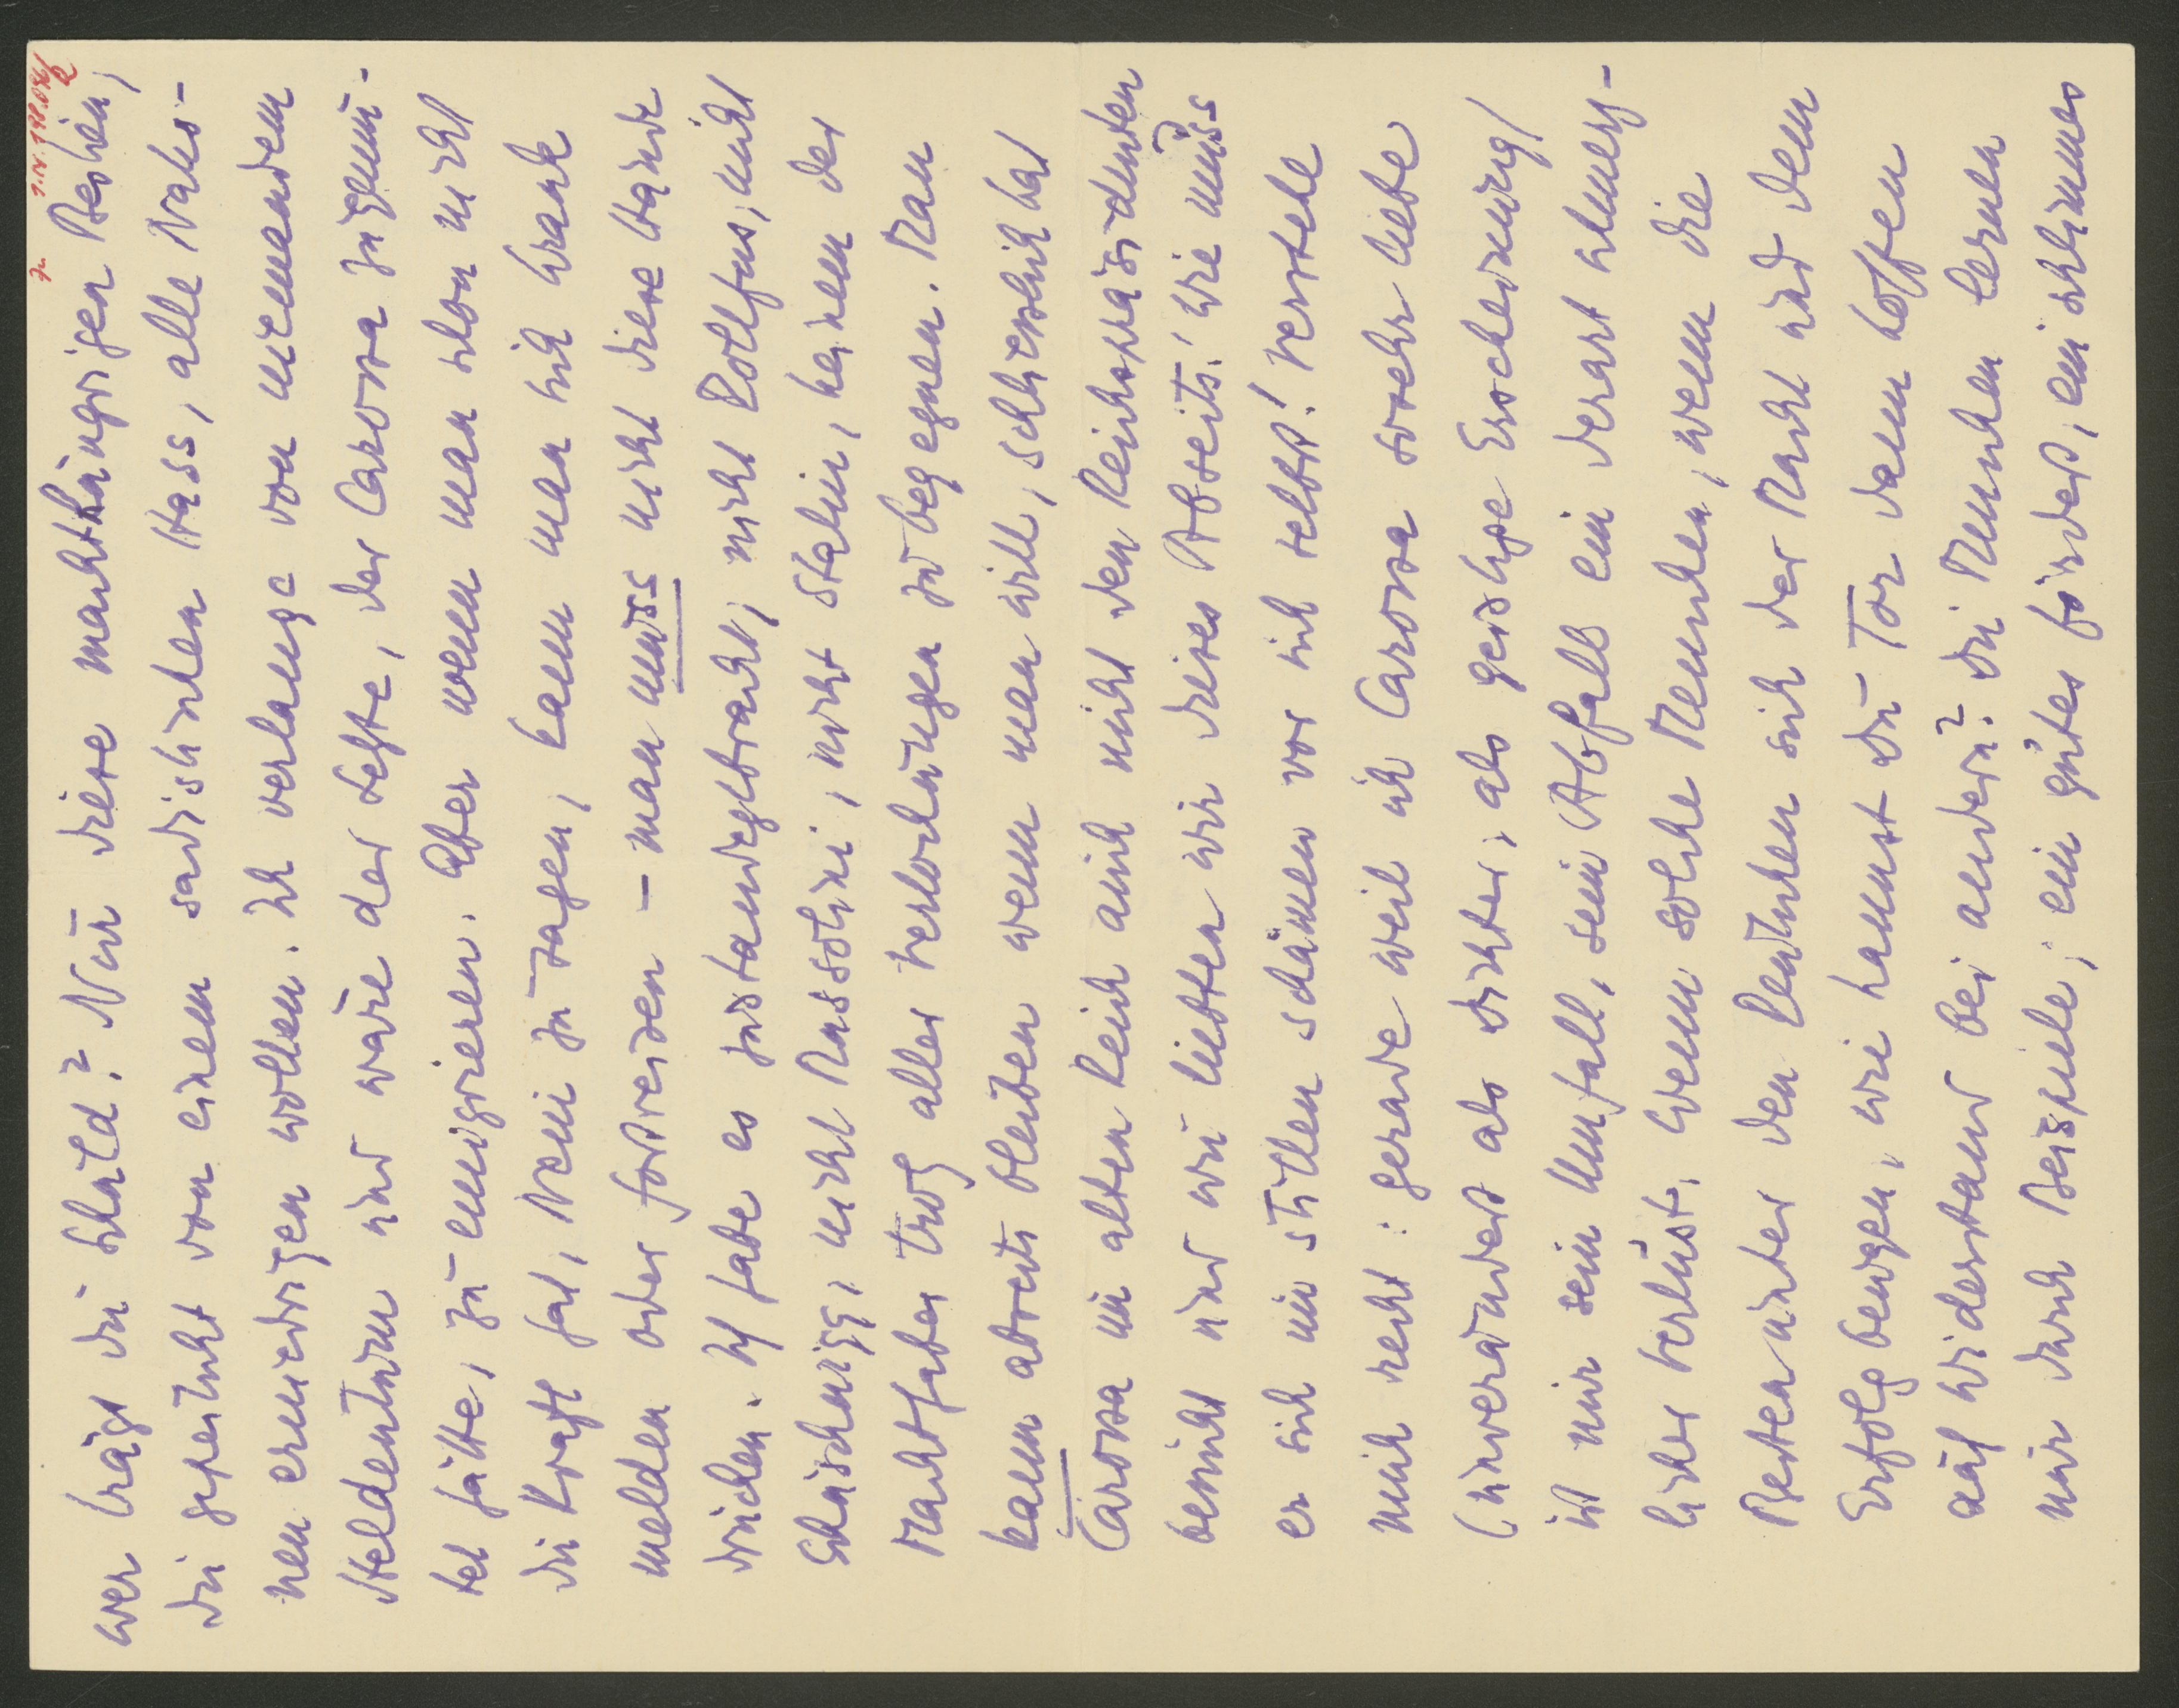 J.N. 192.086
wer trägt die Schuld? Nur diese machthungrigen Bestien,
die gepeitscht von einem sadistischen Hass, alle Natio-
nen erniedrigen wollen. Ich verlange von niemandem
Heldentum und wäre der letzte, der Carossa zugemu-
tet hätte, zu emigrieren. Aber wenn man schon nicht
die Kraft hat, Nein zu sagen, kann man sich krank
melden oder fortreisen – man muss nicht diese Hände
drücken. Ich habe es zustandegebracht, nicht Dollfus, nicht
Schuschnigg, nicht Mussolini, nicht Stalin, keinem der
Machthaber trotz aller Verlockungen zu begegnen. Man
kann abseits bleiben wenn man will, schliesslich hat
Carossa im alten Reich auch nicht den Reichspräsidenten
besucht und wir liebten wir dieses Abseits, wie muss
er sich im Stillen schämen vor sich selbst! Verstehe
mich recht: gerade weil ich Carossa so sehr liebe
(unverändert als Dichter, als geistige Erscheinung)
ist mir sein Umfall, sein Abfall ein derart schmerz-
licher Verlust. Wenn solche Menschen, wenn die
Besten unter den Deutschen sich der Macht und dem
Erfolg beugen, wie kannst Du Tor dann hoffen
auf Widerstand bei andern? Die Menschen lernen
nur durch Beispiele; ein gutes fördert, ein schlimmes